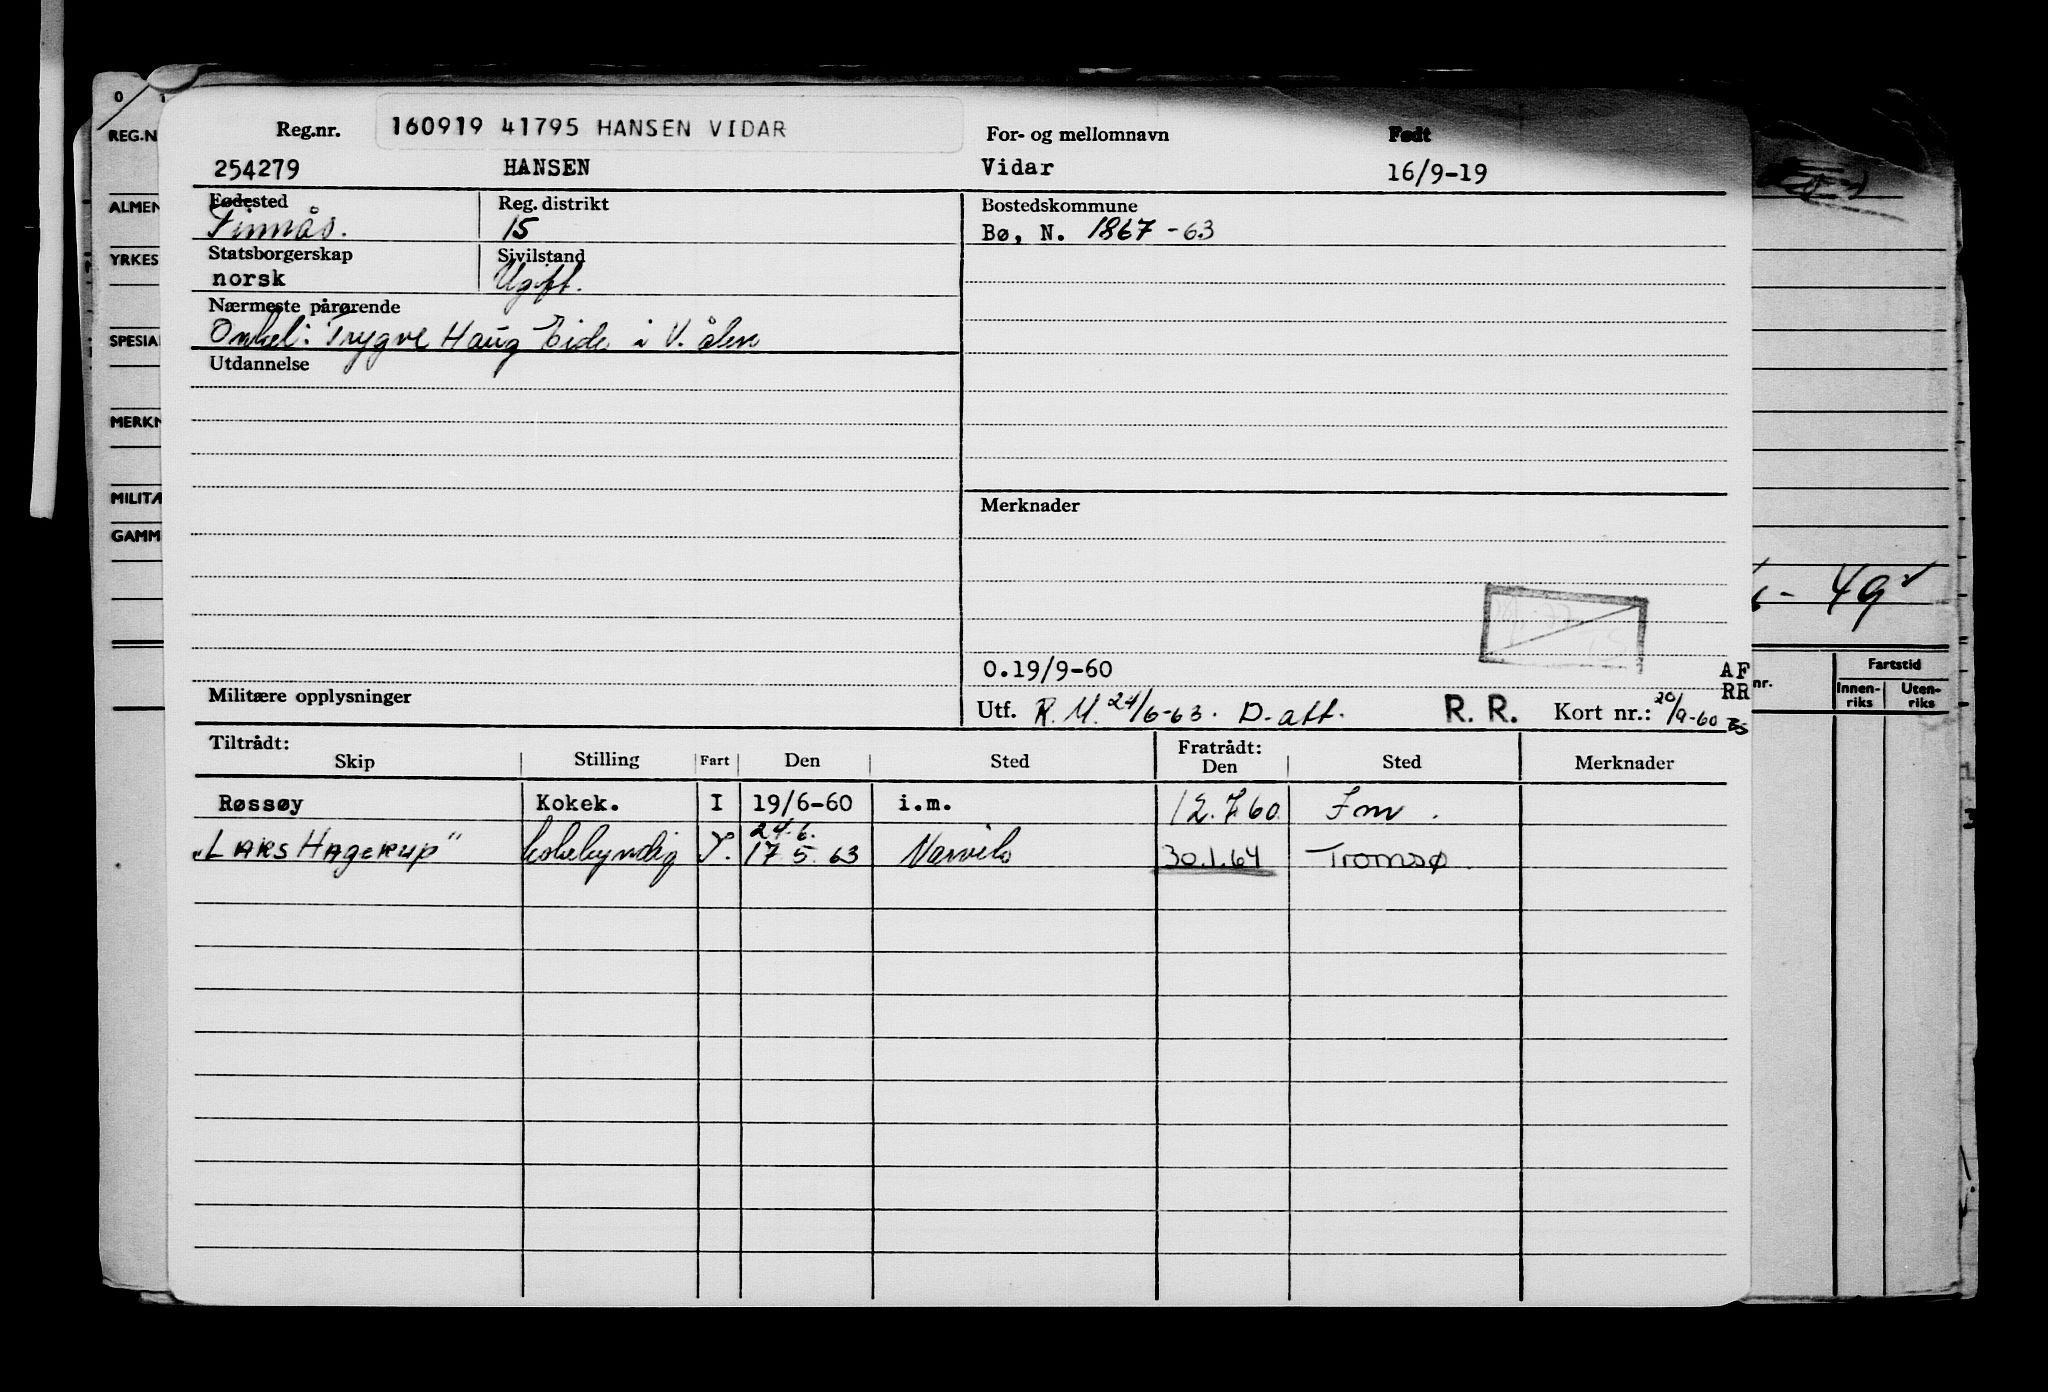 Reg.nr. 160919 41795 HANSEN VIDAR For- og mellomnavn Født
254279 HANSEN Vidar 16/9-19
Fødested Reg. distrikt Bostedskommune
Finnås. 15 Bø, N. 1867-63
Statsborgerskap Sivilstand
norsk Ugift.
Nærmeste pårørende
Onkel: Trygve Haug Eide i V. ålen
Utdannelse
Merknader
O.19/9-60
Militære opplysninger
Utf. R.M. 24/6-63. D-att. R. R. Kort nr.: 20/9-60 BS
AF
RR
Tiltrådt: Fratrådt:
Skip Stilling Fart Den Sted Den Sted Merknader
Røssøy Kokek. I 19/6-60 i.m. 12.7.60. Im.
24.6.
„Lars Hagerup" kokekyndig 17 5. 63 Narvik 30.1.64 Tromsø.
0 1
REG.N
ALMEN
YRKES
SPESIA
MERKN
MILITÆ
GAMM
- 49
nr. Fartstid
Innen-riks Uten-riks